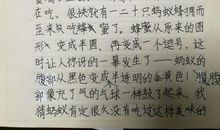 在吃。很快就有一二十只蚂蚁蜂拥而
至来只吃蜂蜜了。蜂蜜从原来的圆
形变成半圆，再变成一个逗号，这
时让人惊讶的一幕发生了——蚂蚁的
腹部从黑色变成半透明的金黄色！腹
部像充了气的气球一样鼓了起来，我
猜蚂蚁肯定很久没有吃过这样美味的